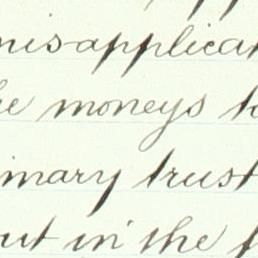 mis-applicat
he moneys to
imary trust
out in the f